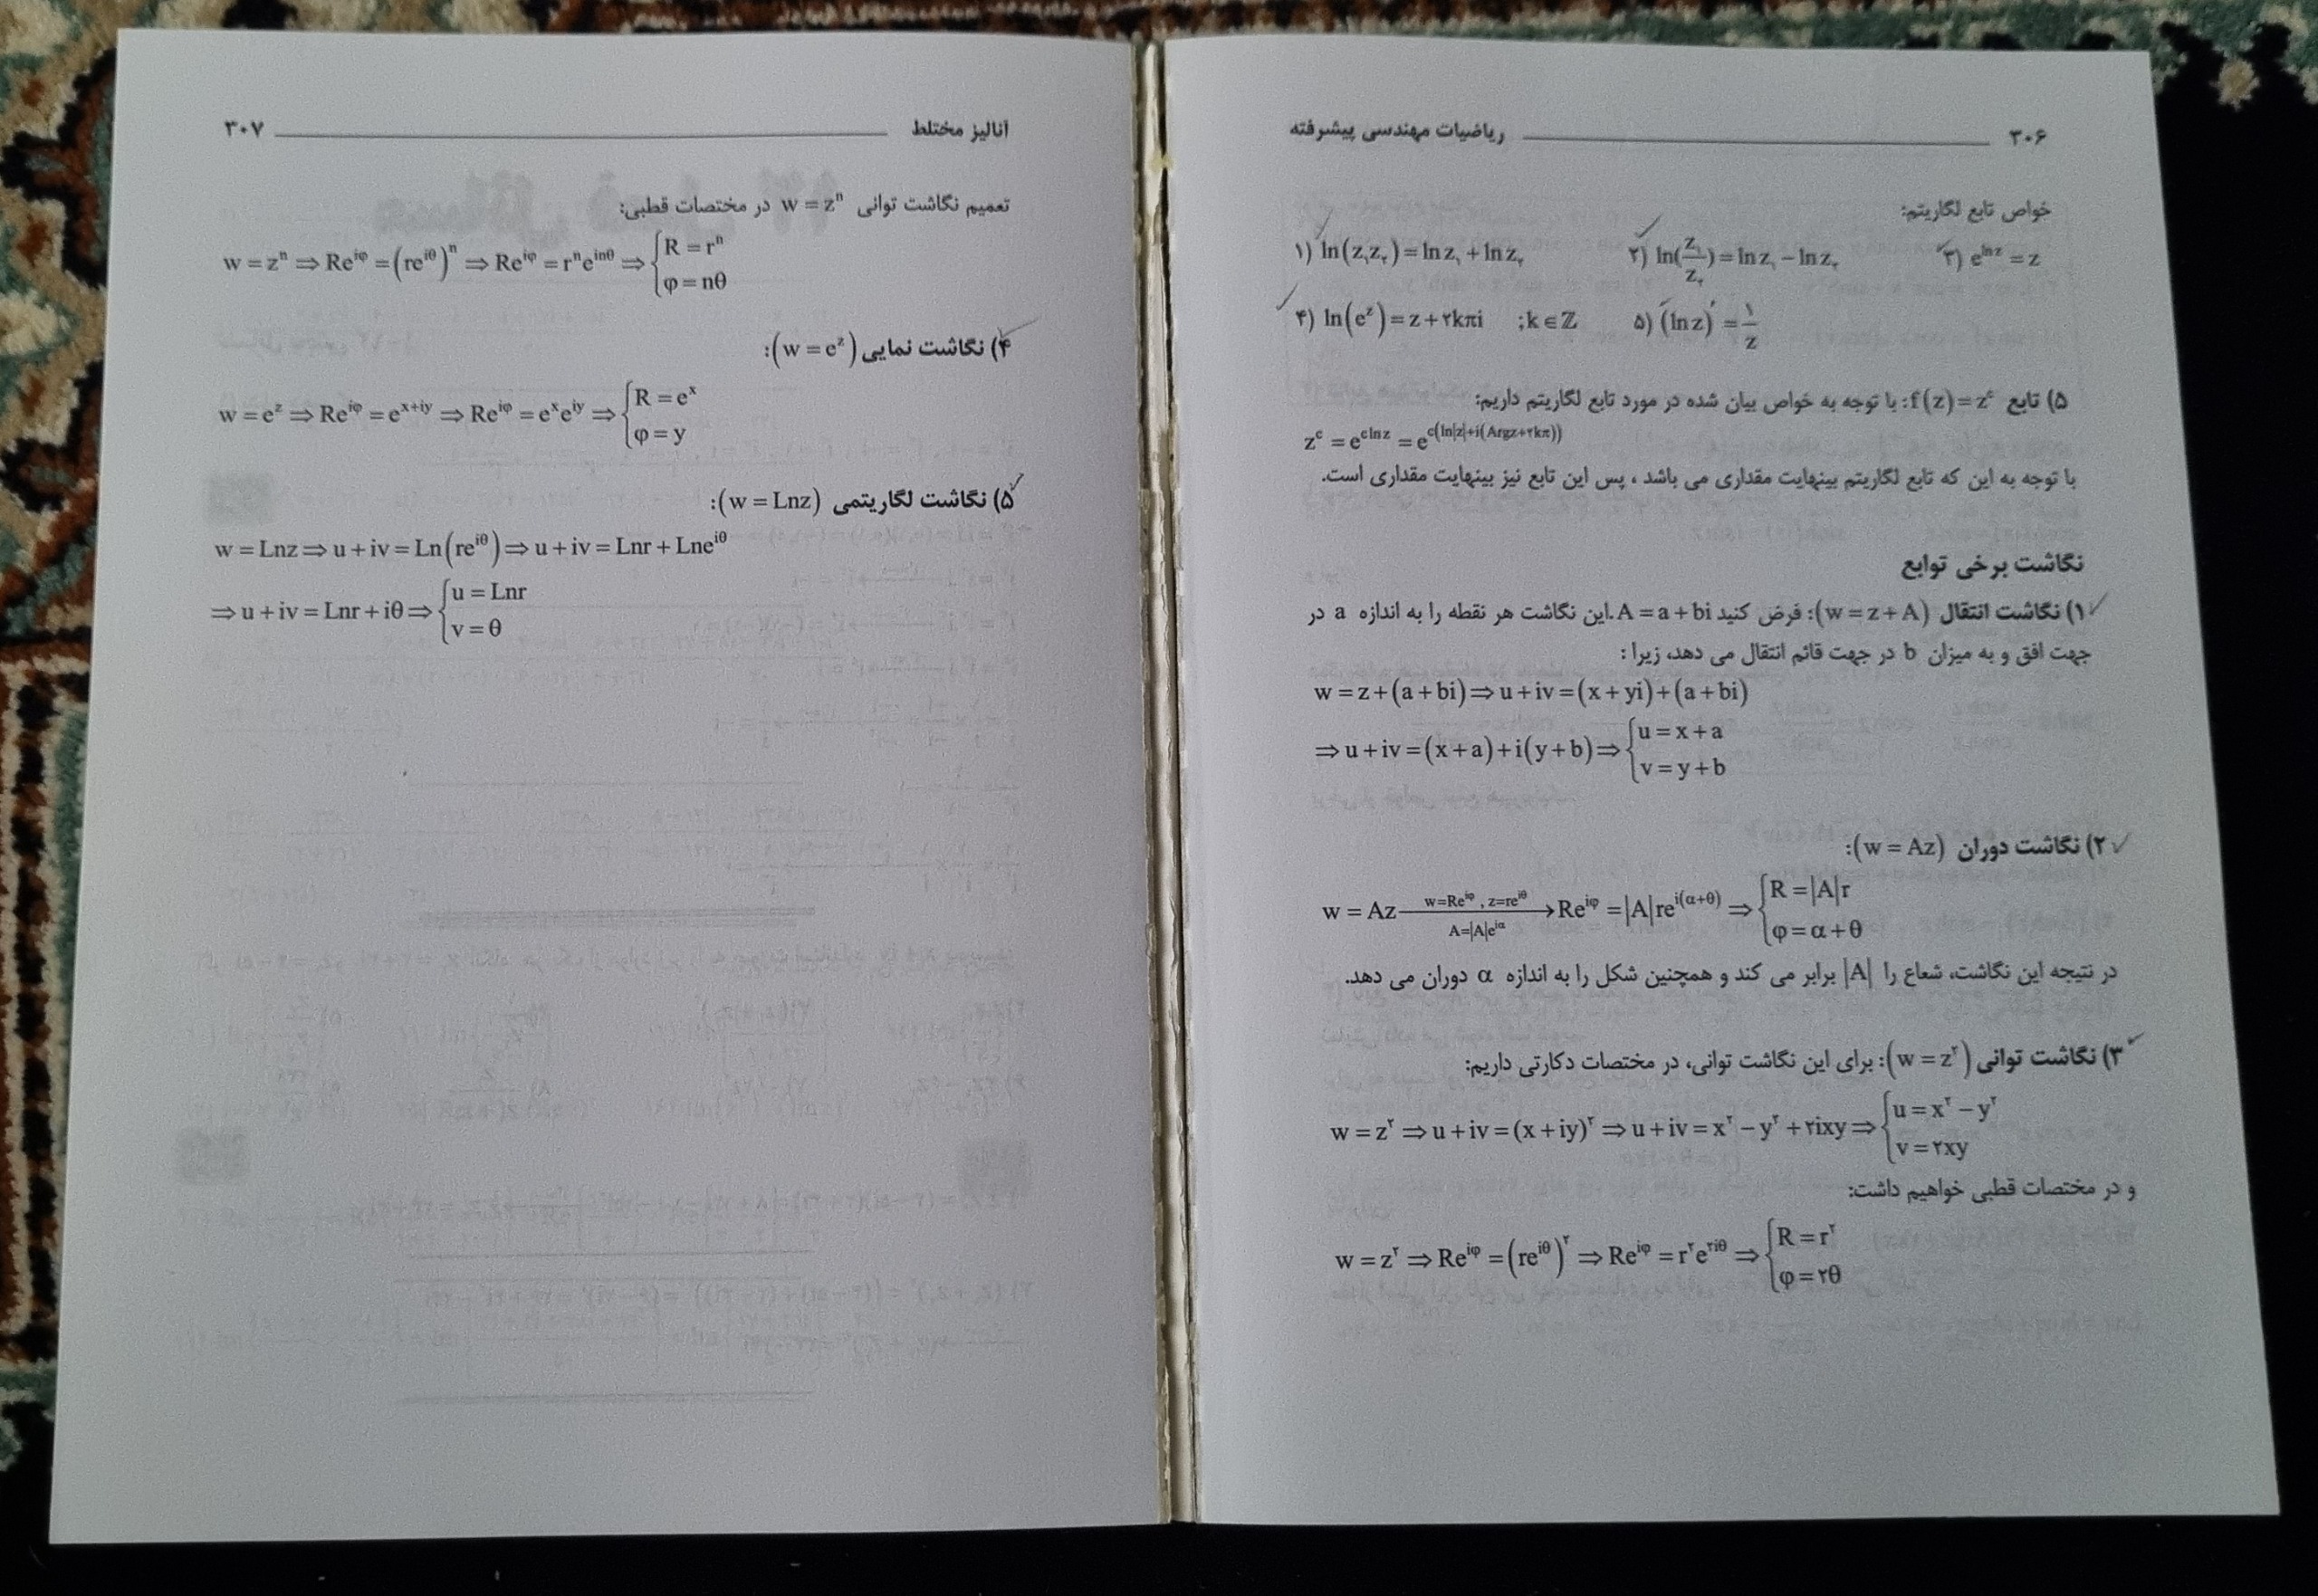 ۳۰۶ ریاضیات مهندسی پیشرفته
خواص تابع لگاریتم:
۱) ln(z₁z₂) = ln z₁ + ln z₂ ۲) ln(z₁/z₂) = ln z₁ − ln z₂ ۳) e^{ln z} = z
۴) ln(e^z) = z + ۲kπi ; k ∈ ℤ ۵) (ln z)′ = ۱/z
۵) تابع f(z) = z^c: با توجه به خواص بیان شده در مورد تابع لگاریتم داریم:
z^c = e^{c ln z} = e^{c(ln|z|+i(Argz+۲kπ))}
با توجه به این که تابع لگاریتم بینهایت مقداری می باشد ، پس این تابع نیز بینهایت مقداری است.
نگاشت برخی توابع
۱) نگاشت انتقال (w = z + A): فرض کنید A = a + bi.این نگاشت هر نقطه را به اندازه a در
جهت افق و به میزان b در جهت قائم انتقال می دهد، زیرا :
w = z + (a + bi) ⇒ u + iv = (x + yi) + (a + bi)
⇒ u + iv = (x + a) + i(y + b) ⇒ { u = x + a
v = y + b
۲) نگاشت دوران (w = Az):
w = Az —(w=Re^{iφ} , z=re^{iθ} / A=|A|e^{iα})→ Re^{iφ} = |A|re^{i(α+θ)} ⇒ { R = |A|r
φ = α + θ
در نتیجه این نگاشت، شعاع را |A| برابر می کند و همچنین شکل را به اندازه α دوران می دهد.
۳) نگاشت توانی (w = z^۲): برای این نگاشت توانی، در مختصات دکارتی داریم:
w = z^۲ ⇒ u + iv = (x + iy)^۲ ⇒ u + iv = x^۲ − y^۲ + ۲ixy ⇒ { u = x^۲ − y^۲
v = ۲xy
و در مختصات قطبی خواهیم داشت:
w = z^۲ ⇒ Re^{iφ} = (re^{iθ})^۲ ⇒ Re^{iφ} = r^۲e^{۲iθ} ⇒ { R = r^۲
φ = ۲θ
آنالیز مختلط ۳۰۷
تعمیم نگاشت توانی w = z^n در مختصات قطبی:
w = z^n ⇒ Re^{iφ} = (re^{iθ})^n ⇒ Re^{iφ} = r^n e^{inθ} ⇒ { R = r^n
φ = nθ
۴) نگاشت نمایی (w = e^z):
w = e^z ⇒ Re^{iφ} = e^{x+iy} ⇒ Re^{iφ} = e^x e^{iy} ⇒ { R = e^x
φ = y
۵) نگاشت لگاریتمی (w = Lnz):
w = Lnz ⇒ u + iv = Ln(re^{iθ}) ⇒ u + iv = Lnr + Lne^{iθ}
⇒ u + iv = Lnr + iθ ⇒ { u = Lnr
v = θ